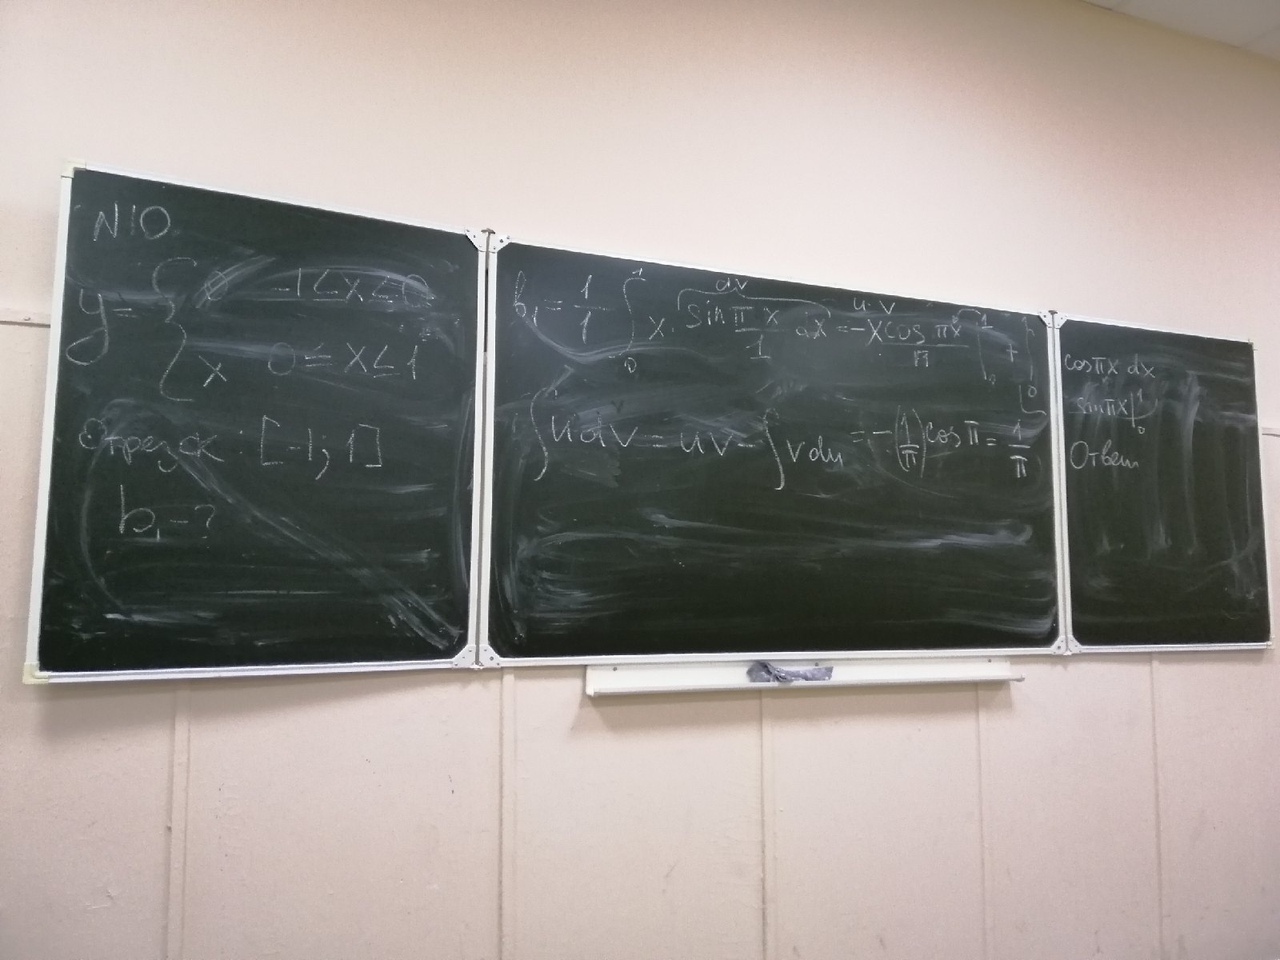 N10
y = { 0 -1 ≤ x ≤ 0
x 0 ≤ x ≤ 1
Отрезок : [-1; 1]
b₁ - ?
dv
b₁ = 1/1 ∫₀¹ x · sin π x/1 dx = -x cos πx/π |₀¹ +
u·v
∫ u dv = uv - ∫ v du = -(1/π) cos π = 1/π
cos πx dx
sin πx |₀¹
Ответ